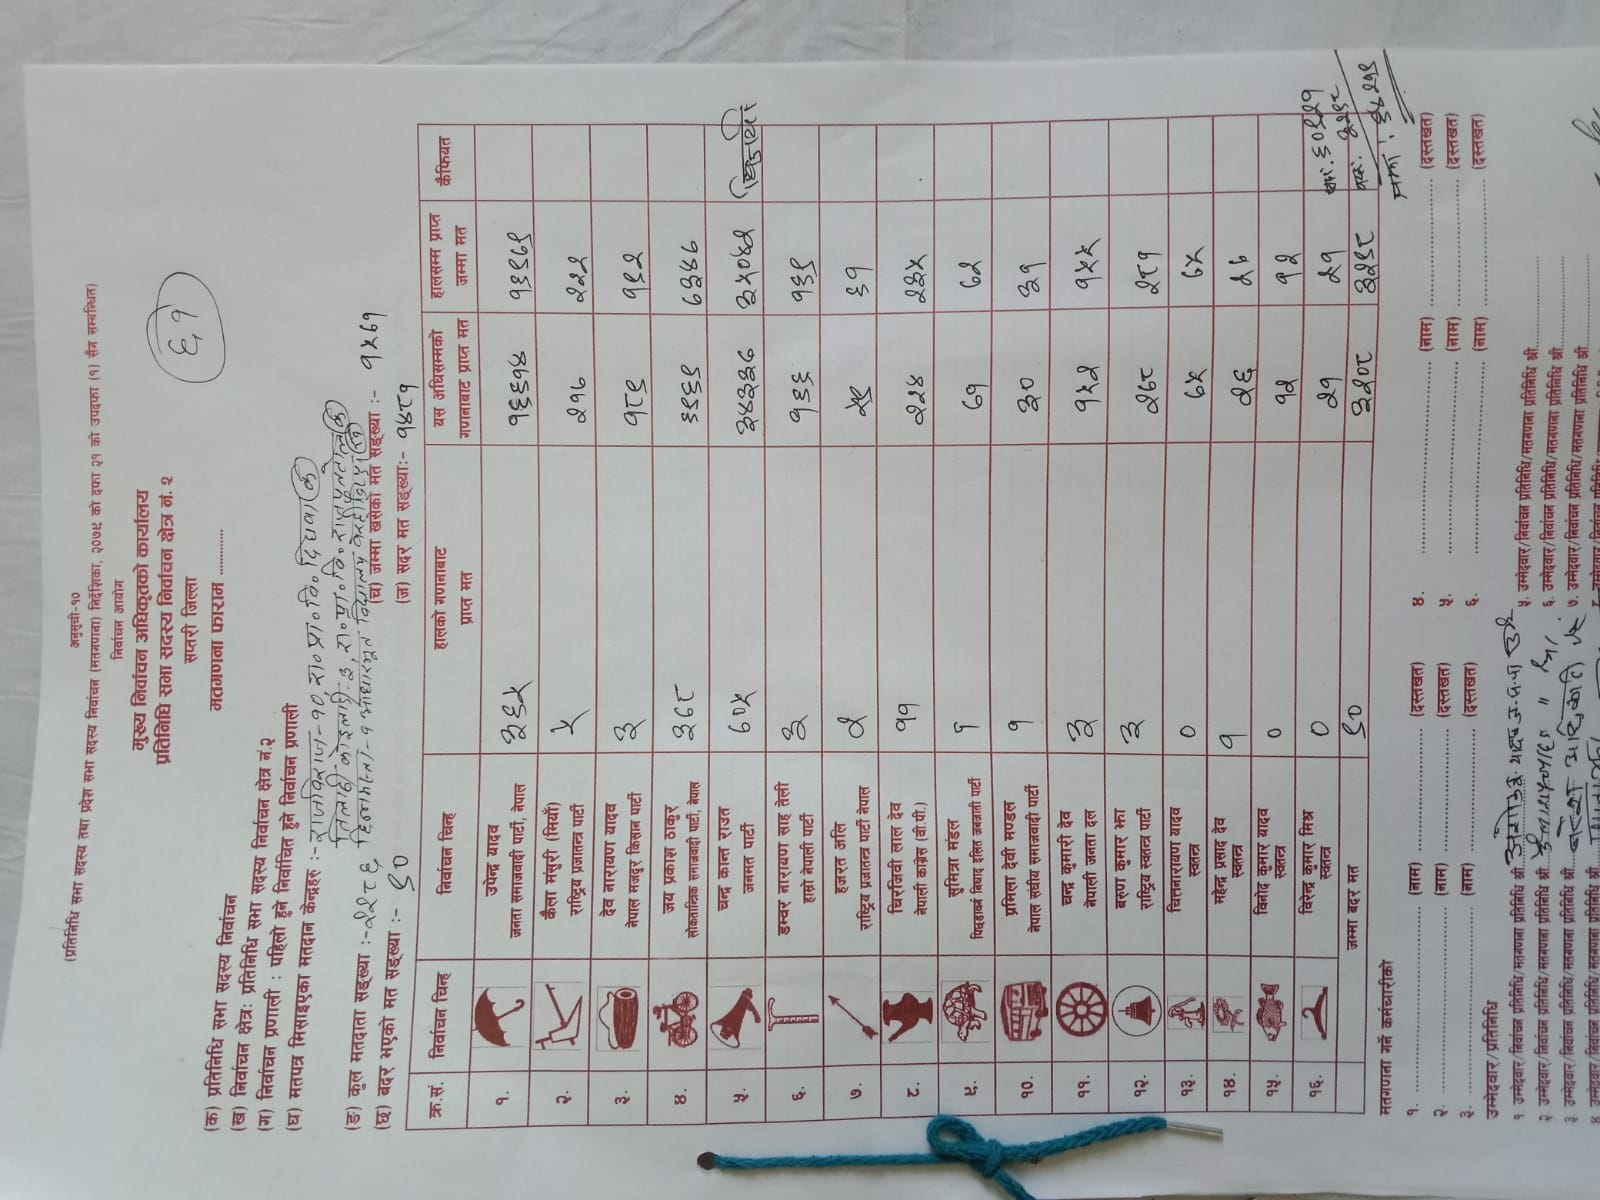 अनुसूची-१०
(प्रतिनिधि सभा सदस्य तथा प्रदेश सभा सदस्य निर्वाचन (मतगणना) निर्देशिका, २०७९ को दफा ३१ को उपदफा (१) सँग सम्बन्धित)
निर्वाचन आयोग
मुख्य निर्वाचन अधिकृतको कार्यालय
प्रतिनिधि सभा सदस्य निर्वाचन क्षेत्र नं. २
सप्तरी जिल्ला
मतगणना फाराम ............
६१
(क) प्रतिनिधि सभा सदस्य निर्वाचन
(ख) निर्वाचन क्षेत्र: प्रतिनिधि सभा सदस्य निर्वाचन क्षेत्र नं.२
(ग) निर्वाचन प्रणाली : पहिलो हुने निर्वाचित हुने निर्वाचन प्रणाली
(घ) मतपत्र मिसाइएका मतदान केन्द्रहरु :- राजविराज-१० रा०प्रा०वि० दिघवा (क)
तिलाठी कोइलाडी-३, रा०प्रा०वि०
(ङ) कुल मतदाता सङ्ख्या :- २२८६
(च) जम्मा खसेको मत सङ्ख्या :- १५७१
(छ) बदर भएको मत सङ्ख्या :- ९०
(ज) सदर मत सङ्ख्या:- १४८१
क्र.सं. निर्वाचन चिन्ह निर्वाचन चिन्ह हालको गणनाबाट प्राप्त मत यस अघिसम्मको गणनाबाट प्राप्त मत हालसम्म प्राप्त जम्मा मत कैफियत
१. उपेन्द्र यादव जनता समाजवादी पार्टी, नेपाल ३६५ १६६१४ १६९७९
२. कैला मंसुरी (मियाँ) राष्ट्रिय प्रजातन्त्र पार्टी ५ २१७ २२२
३. देव नारायण यादव नेपाल मजदुर किसान पार्टी ३ १८९ १९२
४. जय प्रकाश ठाकुर लोकतान्त्रिक समाजवादी पार्टी, नेपाल ३७८ ६९६९ ७३४७
५. चन्द्र कान्त राउत जनमत पार्टी ७०५ ३४३३७ ३५०४२ विजयी
६. डम्वर नारायण साह तेली हाम्रो नेपाली पार्टी ३ १३६ १३९
७. हजरत अलि राष्ट्रिय प्रजातन्त्र पार्टी नेपाल २ ५९ ६१
८. चिरंजिवी लाल देव नेपाली कांग्रेस (बी.पी.) ११ २२४ २३५
९. सुमित्रा मंडल पिछडावर्ग निषाद दलित जनजाती पार्टी १ ७१ ७२
१०. प्रमिला देवी मण्डल नेपाल संघीय समाजवादी पार्टी १ ३० ३१
११. चन्द्र कुमारी देव नेपाली जनता दल ३ १५२ १५५
१२. बरुण कुमार झा राष्ट्रिय स्वतन्त्र पार्टी ३ २७८ २८१
१३. चित्तनारायण यादव स्वतन्त्र ० ७५ ७५
१४. महेन्द्र प्रसाद देव स्वतन्त्र १ २६ २७
१५. विनोद कुमार यादव स्वतन्त्र ० १२ १२
१६. विरेन्द्र कुमार मिश्र स्वतन्त्र ० २१ २१
जम्मा बदर मत ९० ३२०८ ३२९८
सदर: ६०९२१
वदर: ३२९८
जम्मा: ६४२१९
मतगणना गर्ने कर्मचारीको
१. (नाम) (दस्तखत) ४. (नाम) (दस्तखत)
२. (नाम) (दस्तखत) ५. (नाम) (दस्तखत)
३. (नाम) (दस्तखत) ६. (नाम) (दस्तखत)
उम्मेदवार/प्रतिनिधि
१. उम्मेदवार/निर्वाचन प्रतिनिधि/मतगणना प्रतिनिधि श्री ५. उम्मेदवार/निर्वाचन प्रतिनिधि/मतगणना प्रतिनिधि श्री
२. उम्मेदवार/निर्वाचन प्रतिनिधि/मतगणना प्रतिनिधि श्री ६. उम्मेदवार/निर्वाचन प्रतिनिधि/मतगणना प्रतिनिधि श्री
३. उम्मेदवार/निर्वाचन प्रतिनिधि/मतगणना प्रतिनिधि श्री ७. उम्मेदवार/निर्वाचन प्रतिनिधि/मतगणना प्रतिनिधि श्री
४. उम्मेदवार/निर्वाचन प्रतिनिधि/मतगणना प्रतिनिधि श्री